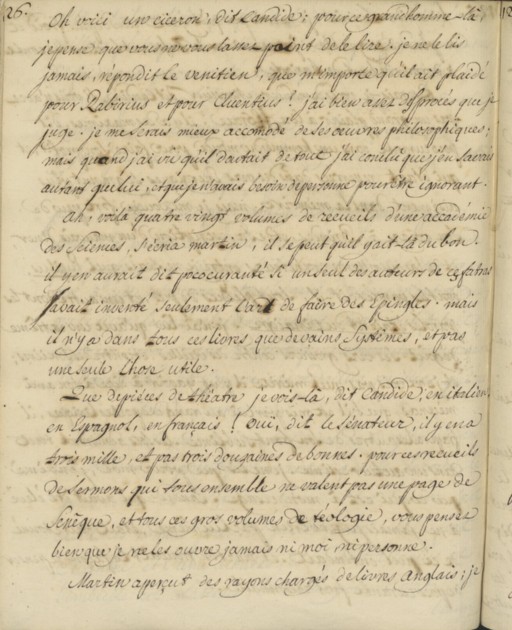 26.
Oh voici un ciceron, dit Candide; pour ce grand homme-là,
je pense que vous ne vous lassez point de le lire. je ne le lis
jamais, répondit le venitien, que m'importe qu'il ait plaidé
pour Rabirius et pour Cluentius! j'ai bien assez des procés que je
juge. je me serais mieux accomodé de ses œuvres philosophiques;
mais quand j'ai vû qu'il doutait de tout j'ai conclu que j'en savais
autant que lui, et que je n'avais besoin de personne pour être ignorant.
Ah, voilà quatre vingt volumes de recueils d'une accadémie
des Sciences, s'écria martin, il se peut qu'il y ait là du bon.
il y en aurait dit pococuranté si un seul des auteurs de ce fatras
avait inventé seulement l'art de faire des Epingles. mais
il n'y a dans tous ces livres que de vains Systêmes, et pas
une seule Chose utile.
Que de pièces de théatre je vois-là, dit Candide, en italien
en Espagnol, en français! Oui, dit le sénateur, il y en a
trois mille, et pas trois douzaines de bonnes. pour ces recueils
de Sermons qui tous ensemble ne valent pas une page de
Senèque, et tous ces gros volumes de téologie, vous pensez
bien que je ne les ouvre jamais ni moi ni personne.
Martin aperçut des rayons chargés de livres Anglais; je